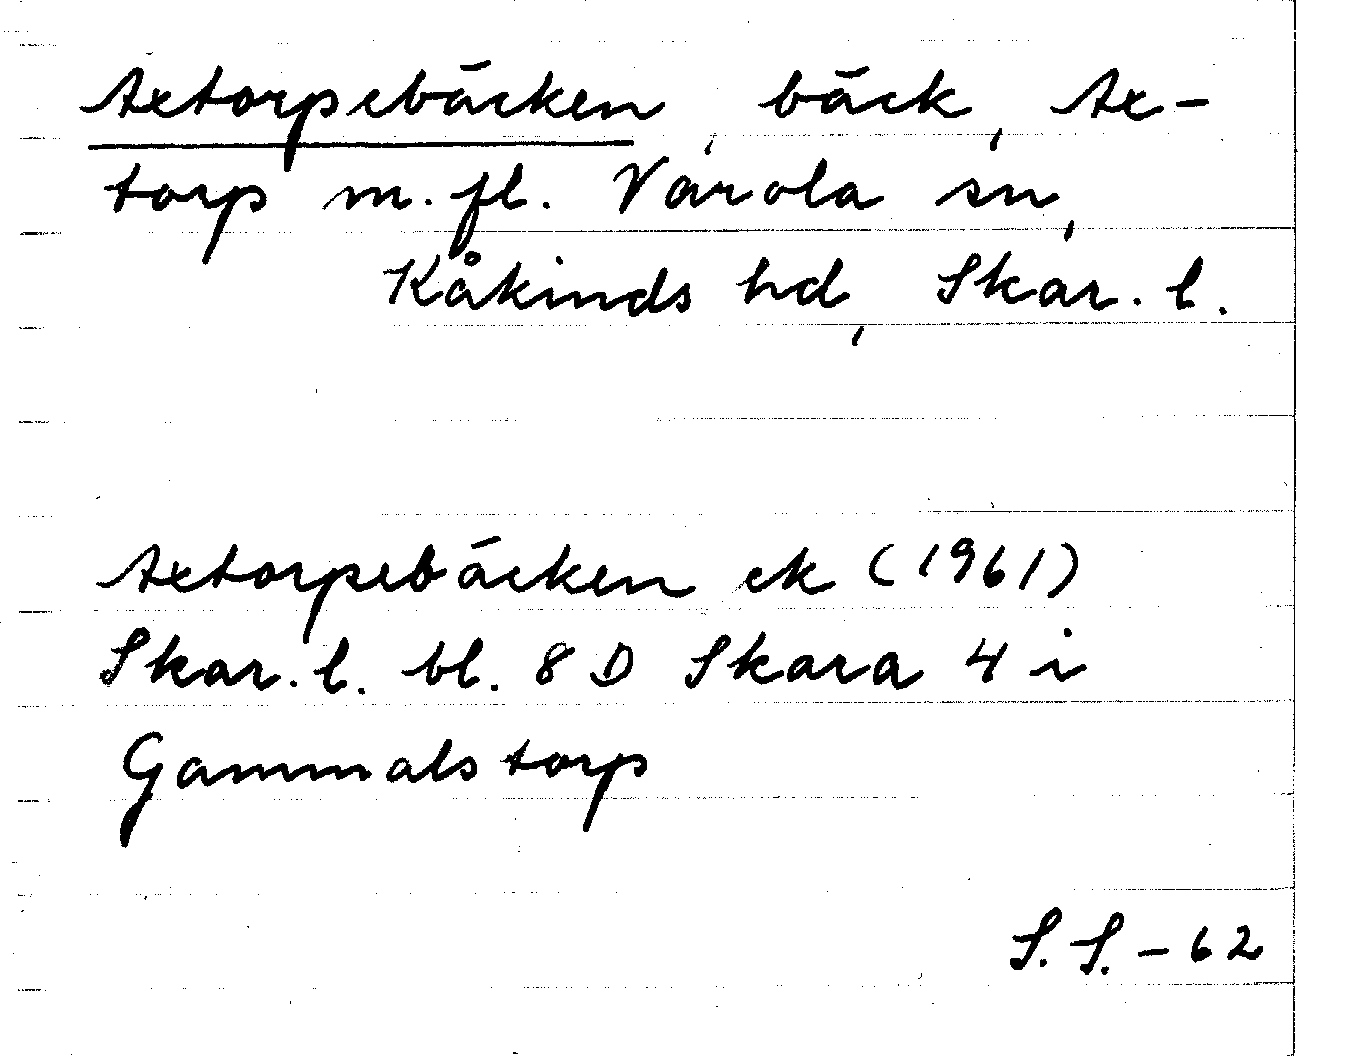 Axtorpebäcken, bäck, Ax-
torp m. fl. Varola sn,
Kåkinds hd, Skar. l.
Axtorpebäcken ek (1961)
Skar. l. bl. 8 D Skara 4 i
Gammalstorp
S. S. - 62